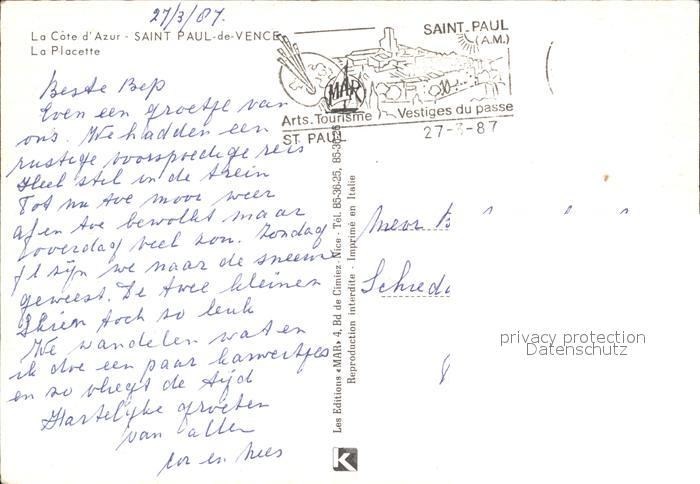 27/3/87.
La Côte d'Azur - SAINT PAUL-de-VENCE
La Placette
SAINT-PAUL
(A.M.)
MAR
Arts. Tourisme Vestiges du passe
ST PAUL
27-3-87
Beste Bep
Even een groetje van
ons. We hadden een
rustige voorspoedige reis
Heel stil in de trein
Tot nu toe mooi weer
af en toe bewolkt maar
overdag veel zon. Zondag
zijn we naar de sneeuw
geweest. De twee kleinen
Skien toch zo leuk
We wandelen wat en
ik doe een paar karweitjes
en zo vliegt de tijd
Hartelijke groeten
van allen
Cor en Kees
Les Editions «MAR» 4, Bd de Cimiez - Nice - Tél. 85-36-25, 85-36-26
Reproduction interdite - Imprimé en Italie
Mevr B
Schied
privacy protection
Datenschutz
K